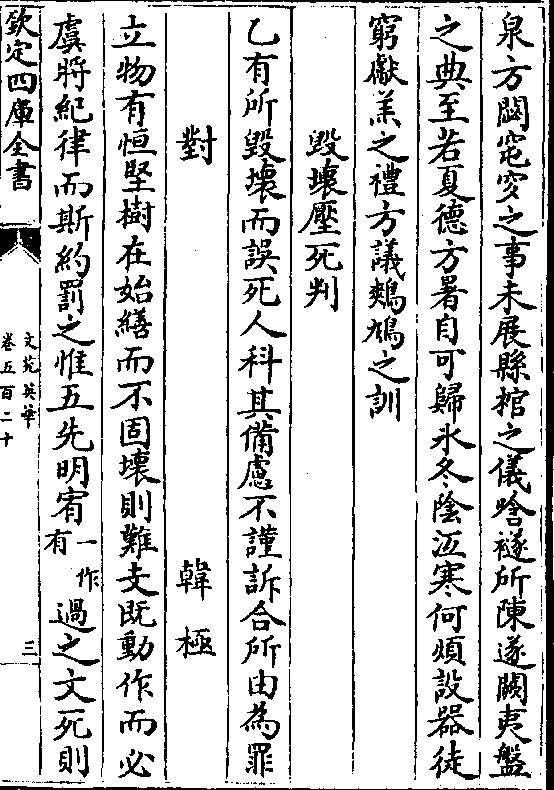 泉方闕窀穸之事未展縣棺之儀唅襚所陳遂闕夷盤
之典至若夏德方暑自可歸氷冬陰沍寒何煩設器徒
窮獻羔之禮方議鷞鳩之訓
毀壞壓死判
乙有所毀壞而誤死人科其備慮不謹訴合所由為罪
對 韓極
立物有恒堅樹在始繕而不固壞則難支既動作而必
虞將紀律而斯約罰之惟五先明宥一作有過之文死則
欽定四庫全書
文苑英華
卷五百二十
三